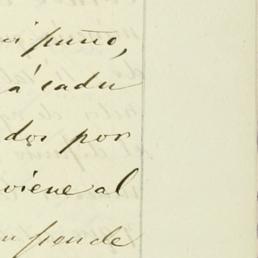 puño,
á cada
dos por
viene al
ponde